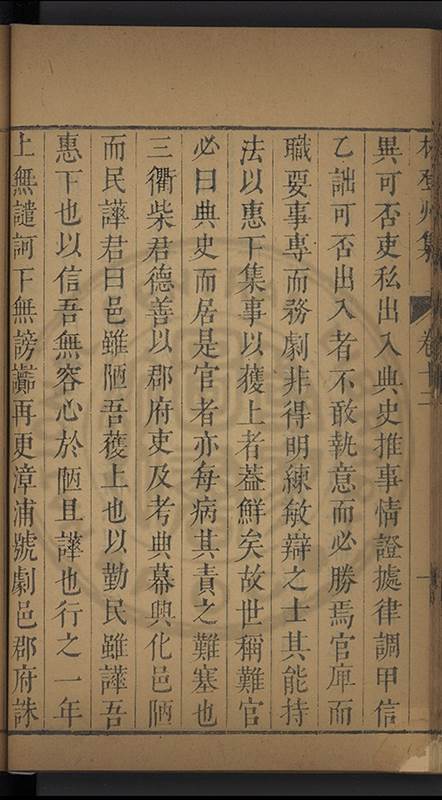 林登州集 卷十三 一
異可否吏私出入典史推事情證據律調甲信
乙詘可否出入者不敢執意而必勝焉官庳而
職要事專而務劇非得明練敏辯之士其能持
法以惠下集事以獲上者葢鮮矣故世稱難官
必曰典史而居是官者亦每病其責之難塞也
三衢柴君德善以郡府吏及考典幕興化邑陋
而民譁君曰邑雖陋吾獲上也以勤民雖譁吾
惠下也以信吾無容心於陋且譁也行之一年
上無譴訶下無謗讟再更漳浦號劇邑郡府誅